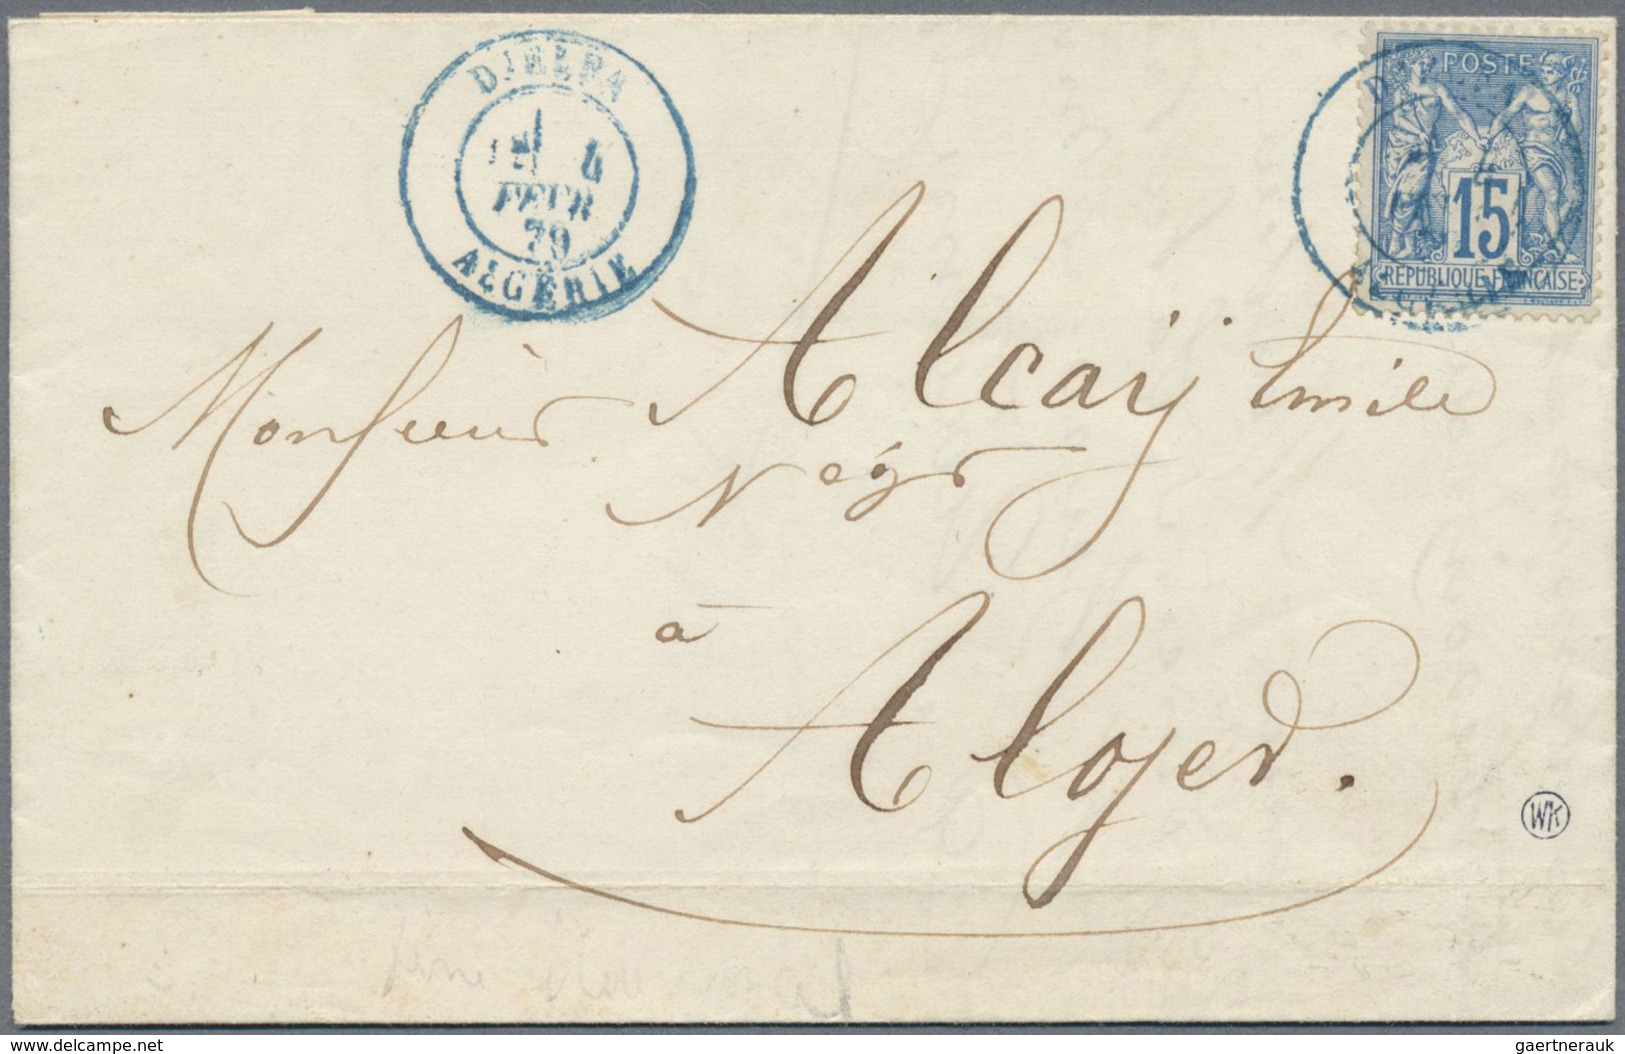 DJELFA
4
FEVR
79
ALGÉRIE
POSTE
15
REPUBLIQUE FRANCAISE
Monsieur Alcaÿ Emile
Négt
à
Alger.
WK
www.delcampe.net
gaertnerauk